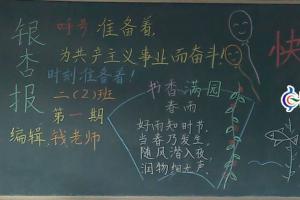 银杏报
呼号 准备着,
为共产主义事业而奋斗!
时刻准备着!
二(2)班
第一期
编辑:钱老师
书香满园
春雨
好雨知时节,
当春乃发生。
随风潜入夜,
润物细无声。
快